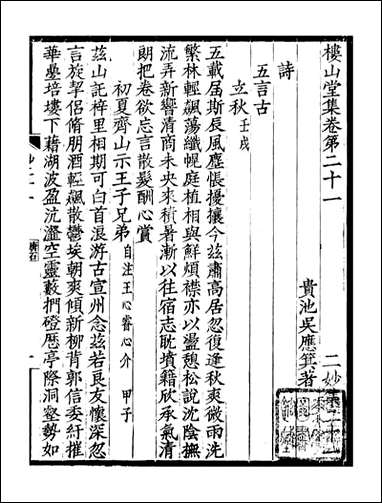 樓山堂集卷第二十一
貴池吳應箕著
二妙集二十一
詩
五言古
立秋 壬戌
五載屆斯辰風塵悵擾攘今茲肅高居忽復逢秋爽微雨洗
繁林輕飆蕩纖幌庭植相與鮮煩襟亦以盪憩松說沈陰撫
流弄新響清商未央來積暑漸以往宿志耽墳籍欣承氣清
朗把卷欲忘言散髮酬心賞
初夏齊山示王子兄弟 自注王心睿心介 甲子
茲山託梓里相期可白首浪游古宣州念茲若良友懷深忽
言旋挈侶脩朋酒輕飆散鬱埃朝爽傾新柳背郭信委紆摧
華壘培塿下藉湖波盈沆瀣空靈藪捫磴歷亭際洞壑勢如